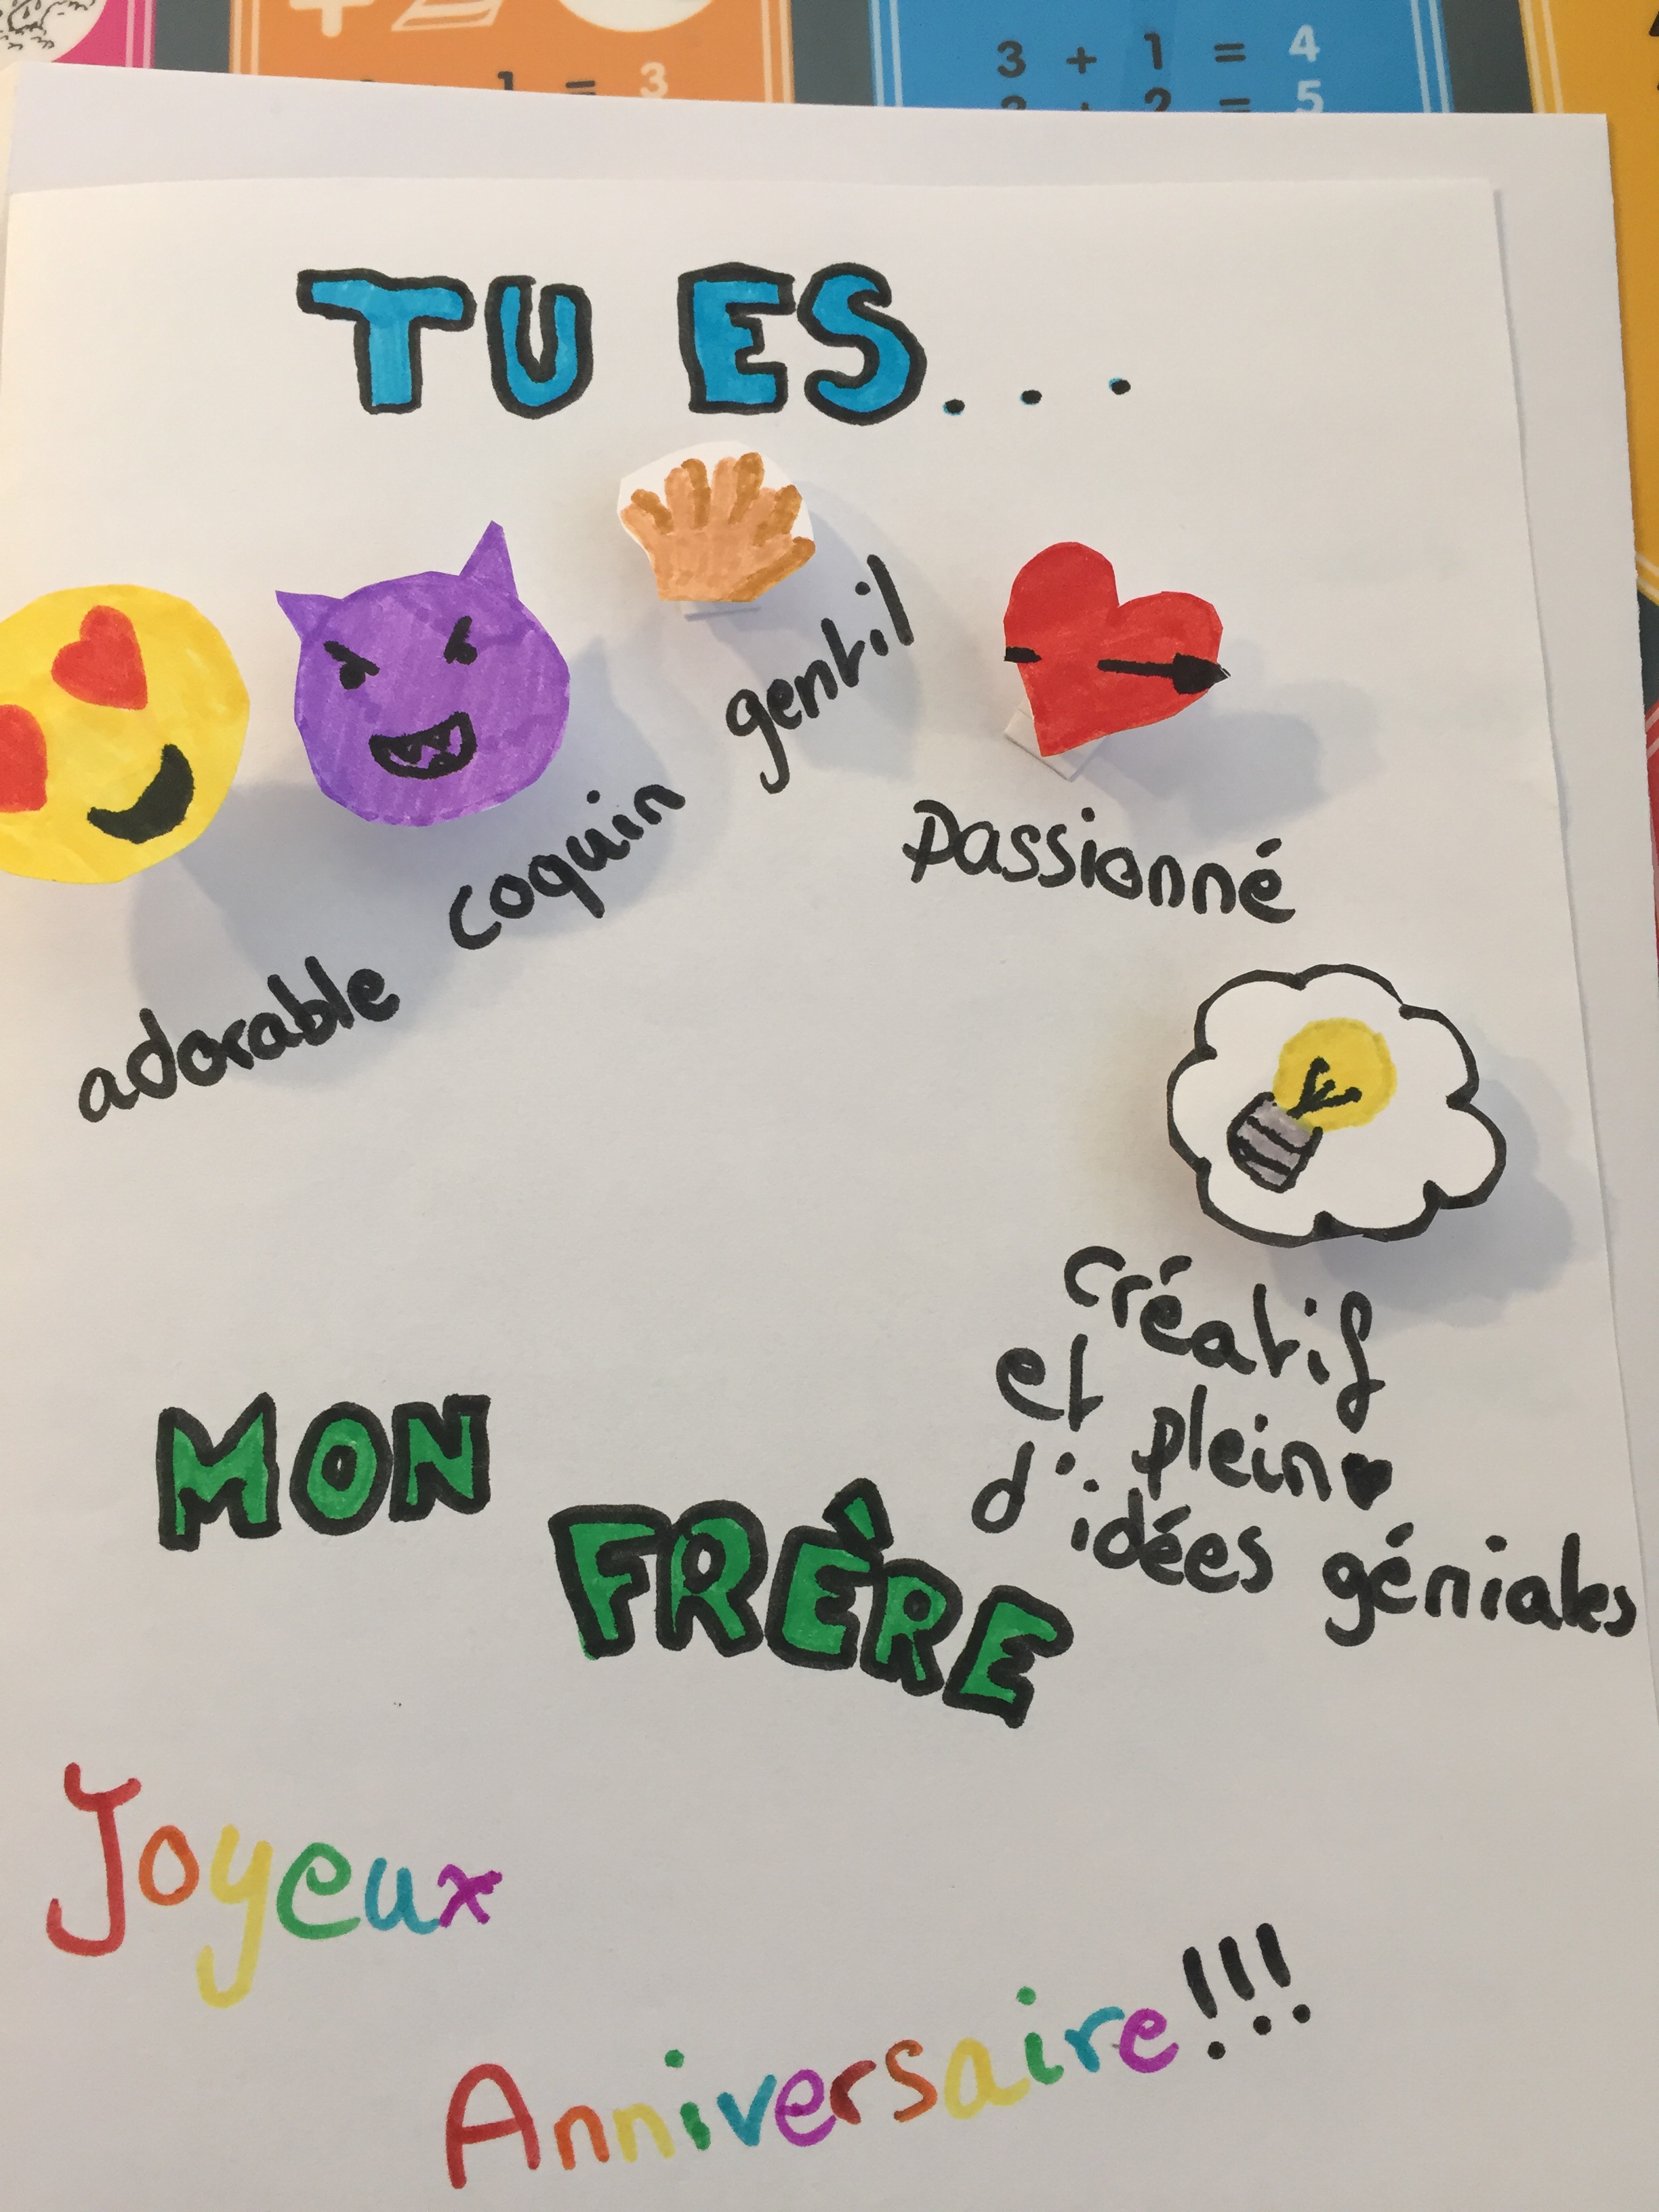 1 = 3
3 + 1 = 4
3 + 2 = 5
TU ES...
gentil
passionné
coquin
adorable
créatif
et plein
d'idées géniales
MON
FRÈRE
Joyeux
Anniversaire!!!